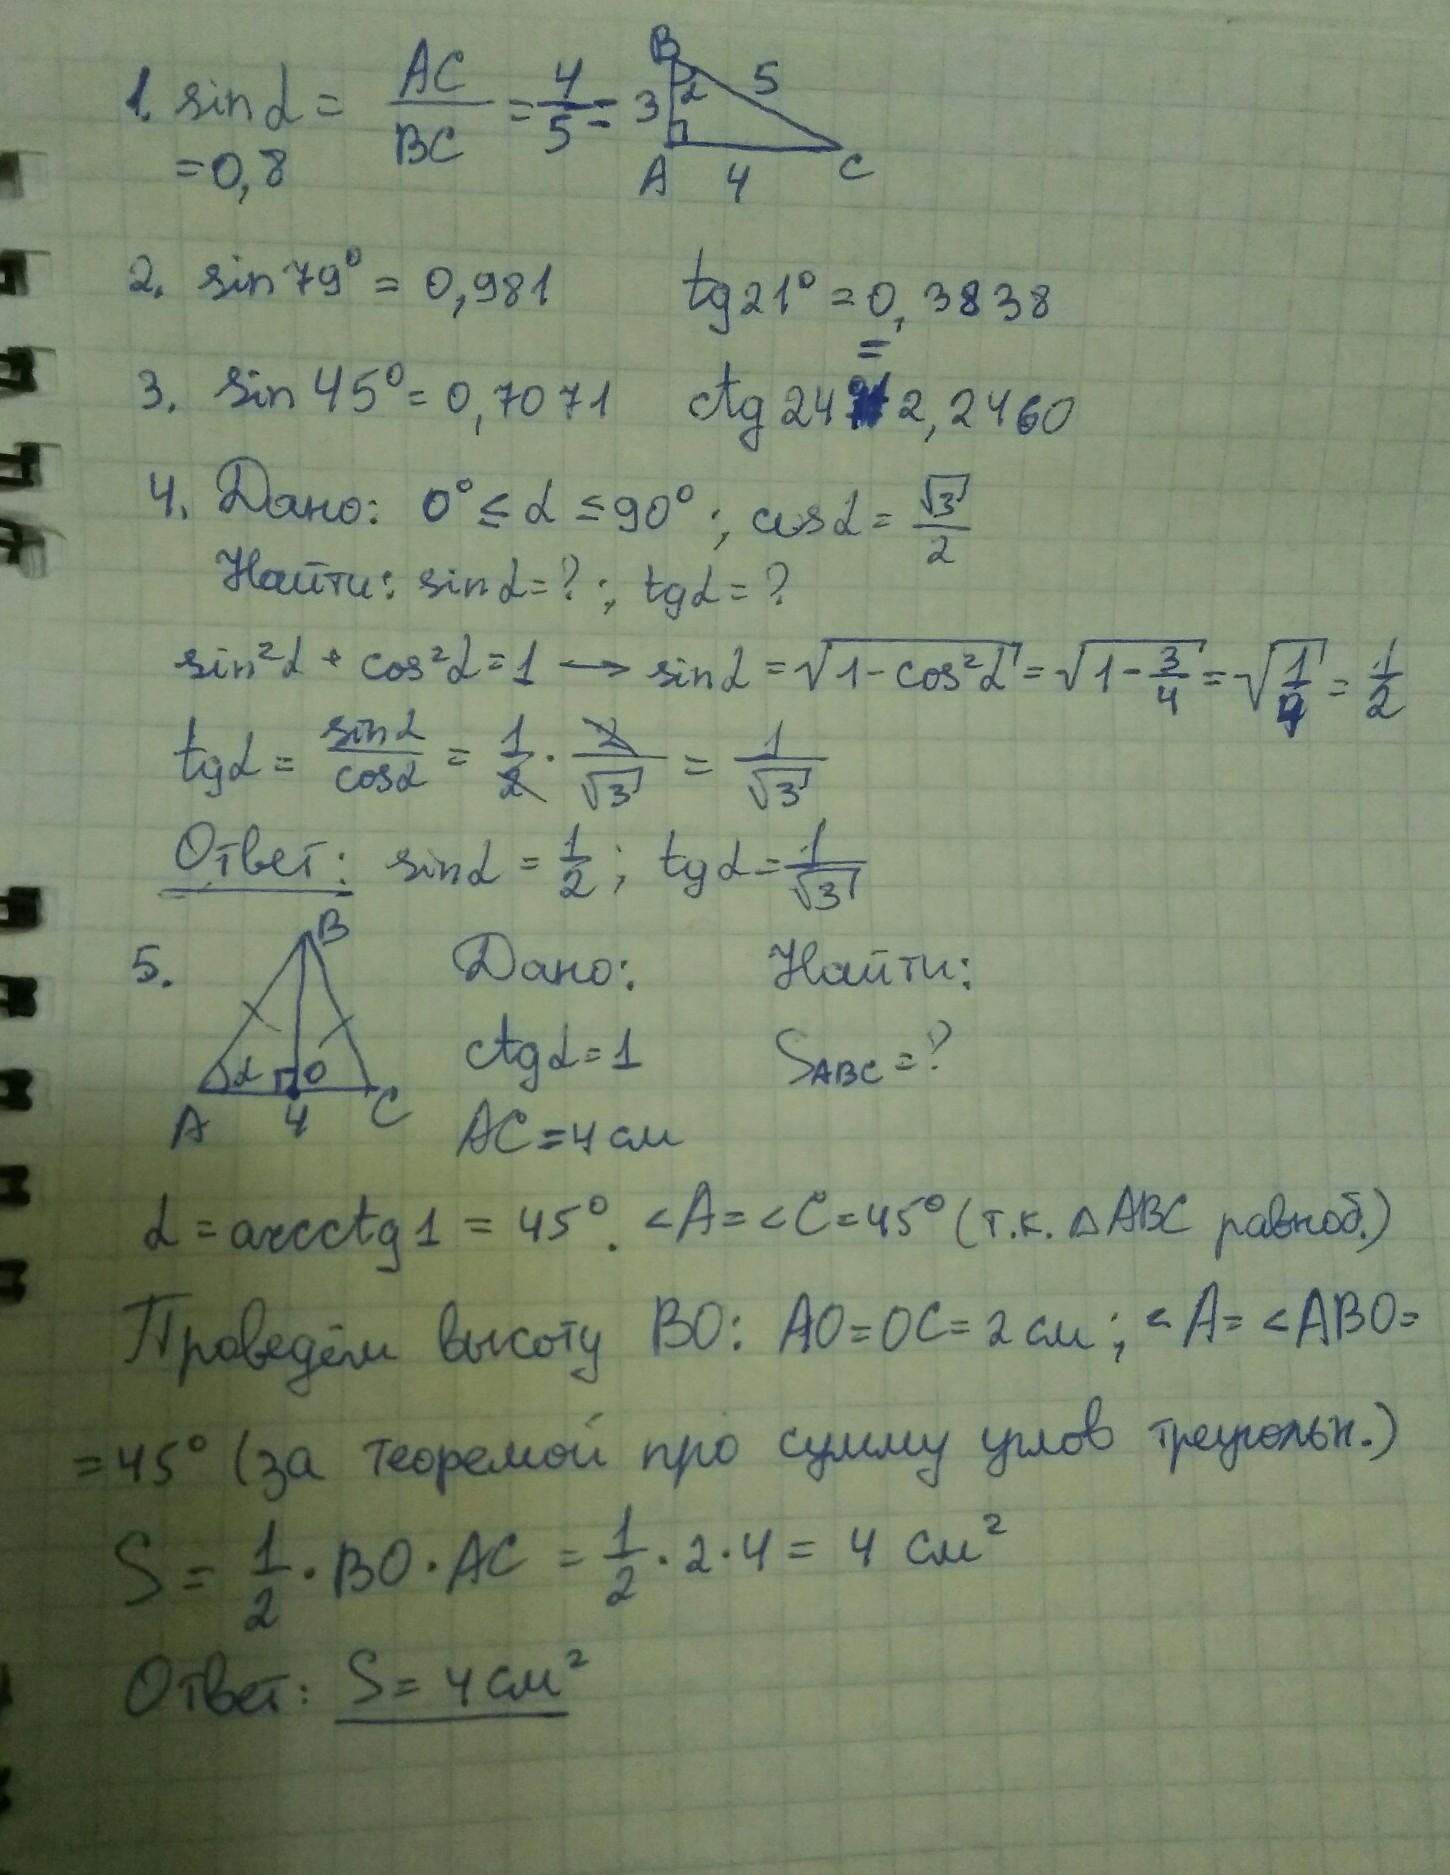 1. sin α = AC/BC = 4/5 =
= 0,8
B
3 α 5
A 4 C
2. sin 79° = 0,981 tg 21° = 0,3838
3. sin 45° = 0,7071 ctg 24 = 2,2460
4. Дано: 0° ≤ α ≤ 90°; cos α = √3/2
Найти: sin α = ?; tg α = ?
sin²α + cos²α = 1 → sin α = √(1 - cos²α) = √(1 - 3/4) = √(1/4) = 1/2
tg α = sin α/cos α = 1/2 · 2/√3 = 1/√3
Ответ: sin α = 1/2; tg α = 1/√3
5. Дано: Найти:
ctg α = 1 S ABC = ?
AC = 4 см
B
α O
A 4 C
α = arcctg 1 = 45°. <A = <C = 45° (т.к. △ABC равноб.)
Проведём высоту BO: AO = OC = 2 см; <A = <ABO =
= 45° (за теоремой про сумму углов треугольн.)
S = 1/2 · BO · AC = 1/2 · 2 · 4 = 4 см²
Ответ: S = 4 см²